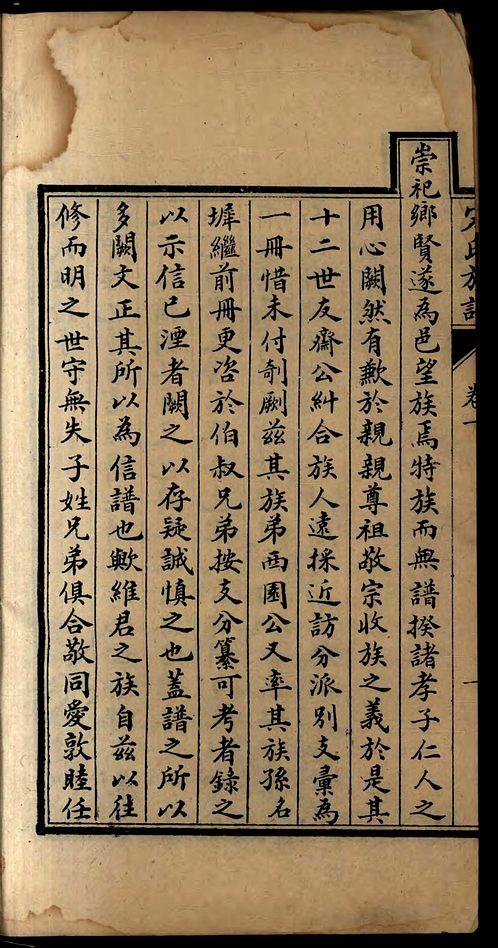 宋氏族譜
卷一
崇祀鄉賢遂為邑望族焉特族而無譜揆諸孝子仁人之
用心闕然有歉於親親尊祖敬宗收族之義於是其
十二世友齋公糾合族人遠採近訪分派別支彙為
一冊惜未付剞劂茲其族弟西園公又率其族孫名
墀繼前冊更咨於伯叔兄弟按支分纂可考者錄之
以示信已湮者闕之以存疑誠慎之也蓋譜之所以
多闕文正其所以為信譜也歟維君之族自茲以往
修而明之世守無失子姓兄弟俱合敬同愛敦睦任